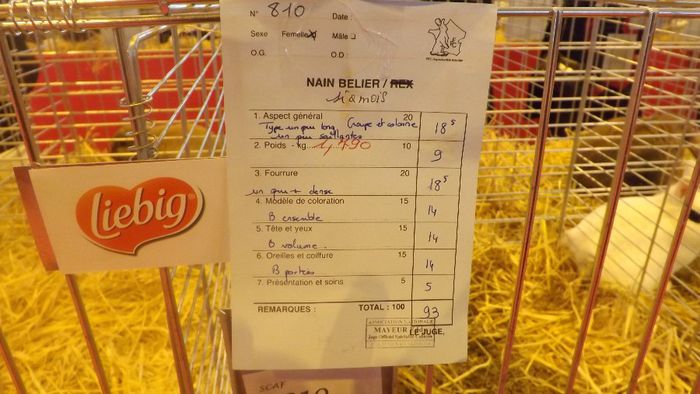 N° 810 Date :
Sexe Femelle X Mâle
O.G. O.D :
NAIN BELIER / REX
1. Aspect général 20 18 5
Type un peu long Croupe et colonne
un peu saillantes
2. Poids - kg 1,790 10 9
3. Fourrure 20 18 5
un peu + dense
4. Modèle de coloration 15 14
B ensemble
5. Tête et yeux 15 14
B volume
6. Oreilles et coiffure 15 14
B portées
7. Présentation et soins 5 5
TOTAL : 100 93
REMARQUES :
ASSOCIATION NATIONALE
MAYEUR
LE JUGE,
Liebig
SCAF